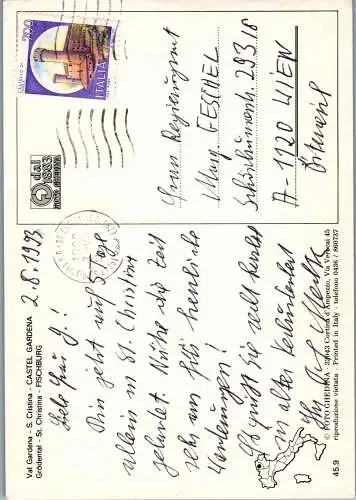 Val Gardena - S. Cristina - CASTEL GARDENA
Grödental - St. Christina - FISCHBURG
2.8.1993
Liebe Frau J.!
Bin jetzt auf 5 Tage
allein in St. Christina
gelandet. Nütze die Zeit
sehr um
herrliche
Wanderungen!
Es grüßt Sie sehr herzlich
in alter Verbundenheit
Ihr
© FOTO GHEDINA - 32043 Cortina d'Ampezzo, Via Verocai 45
riproduzione vietata - Printed in Italy - telefono 0436 / 860737
45.9
dal
1883
FOTO GHEDINA
ITALIA
Frau Regierungsrat
Mag. FESCHEL
Schönbrunnerstr. 293/8
A-1120 WIEN
Österreich